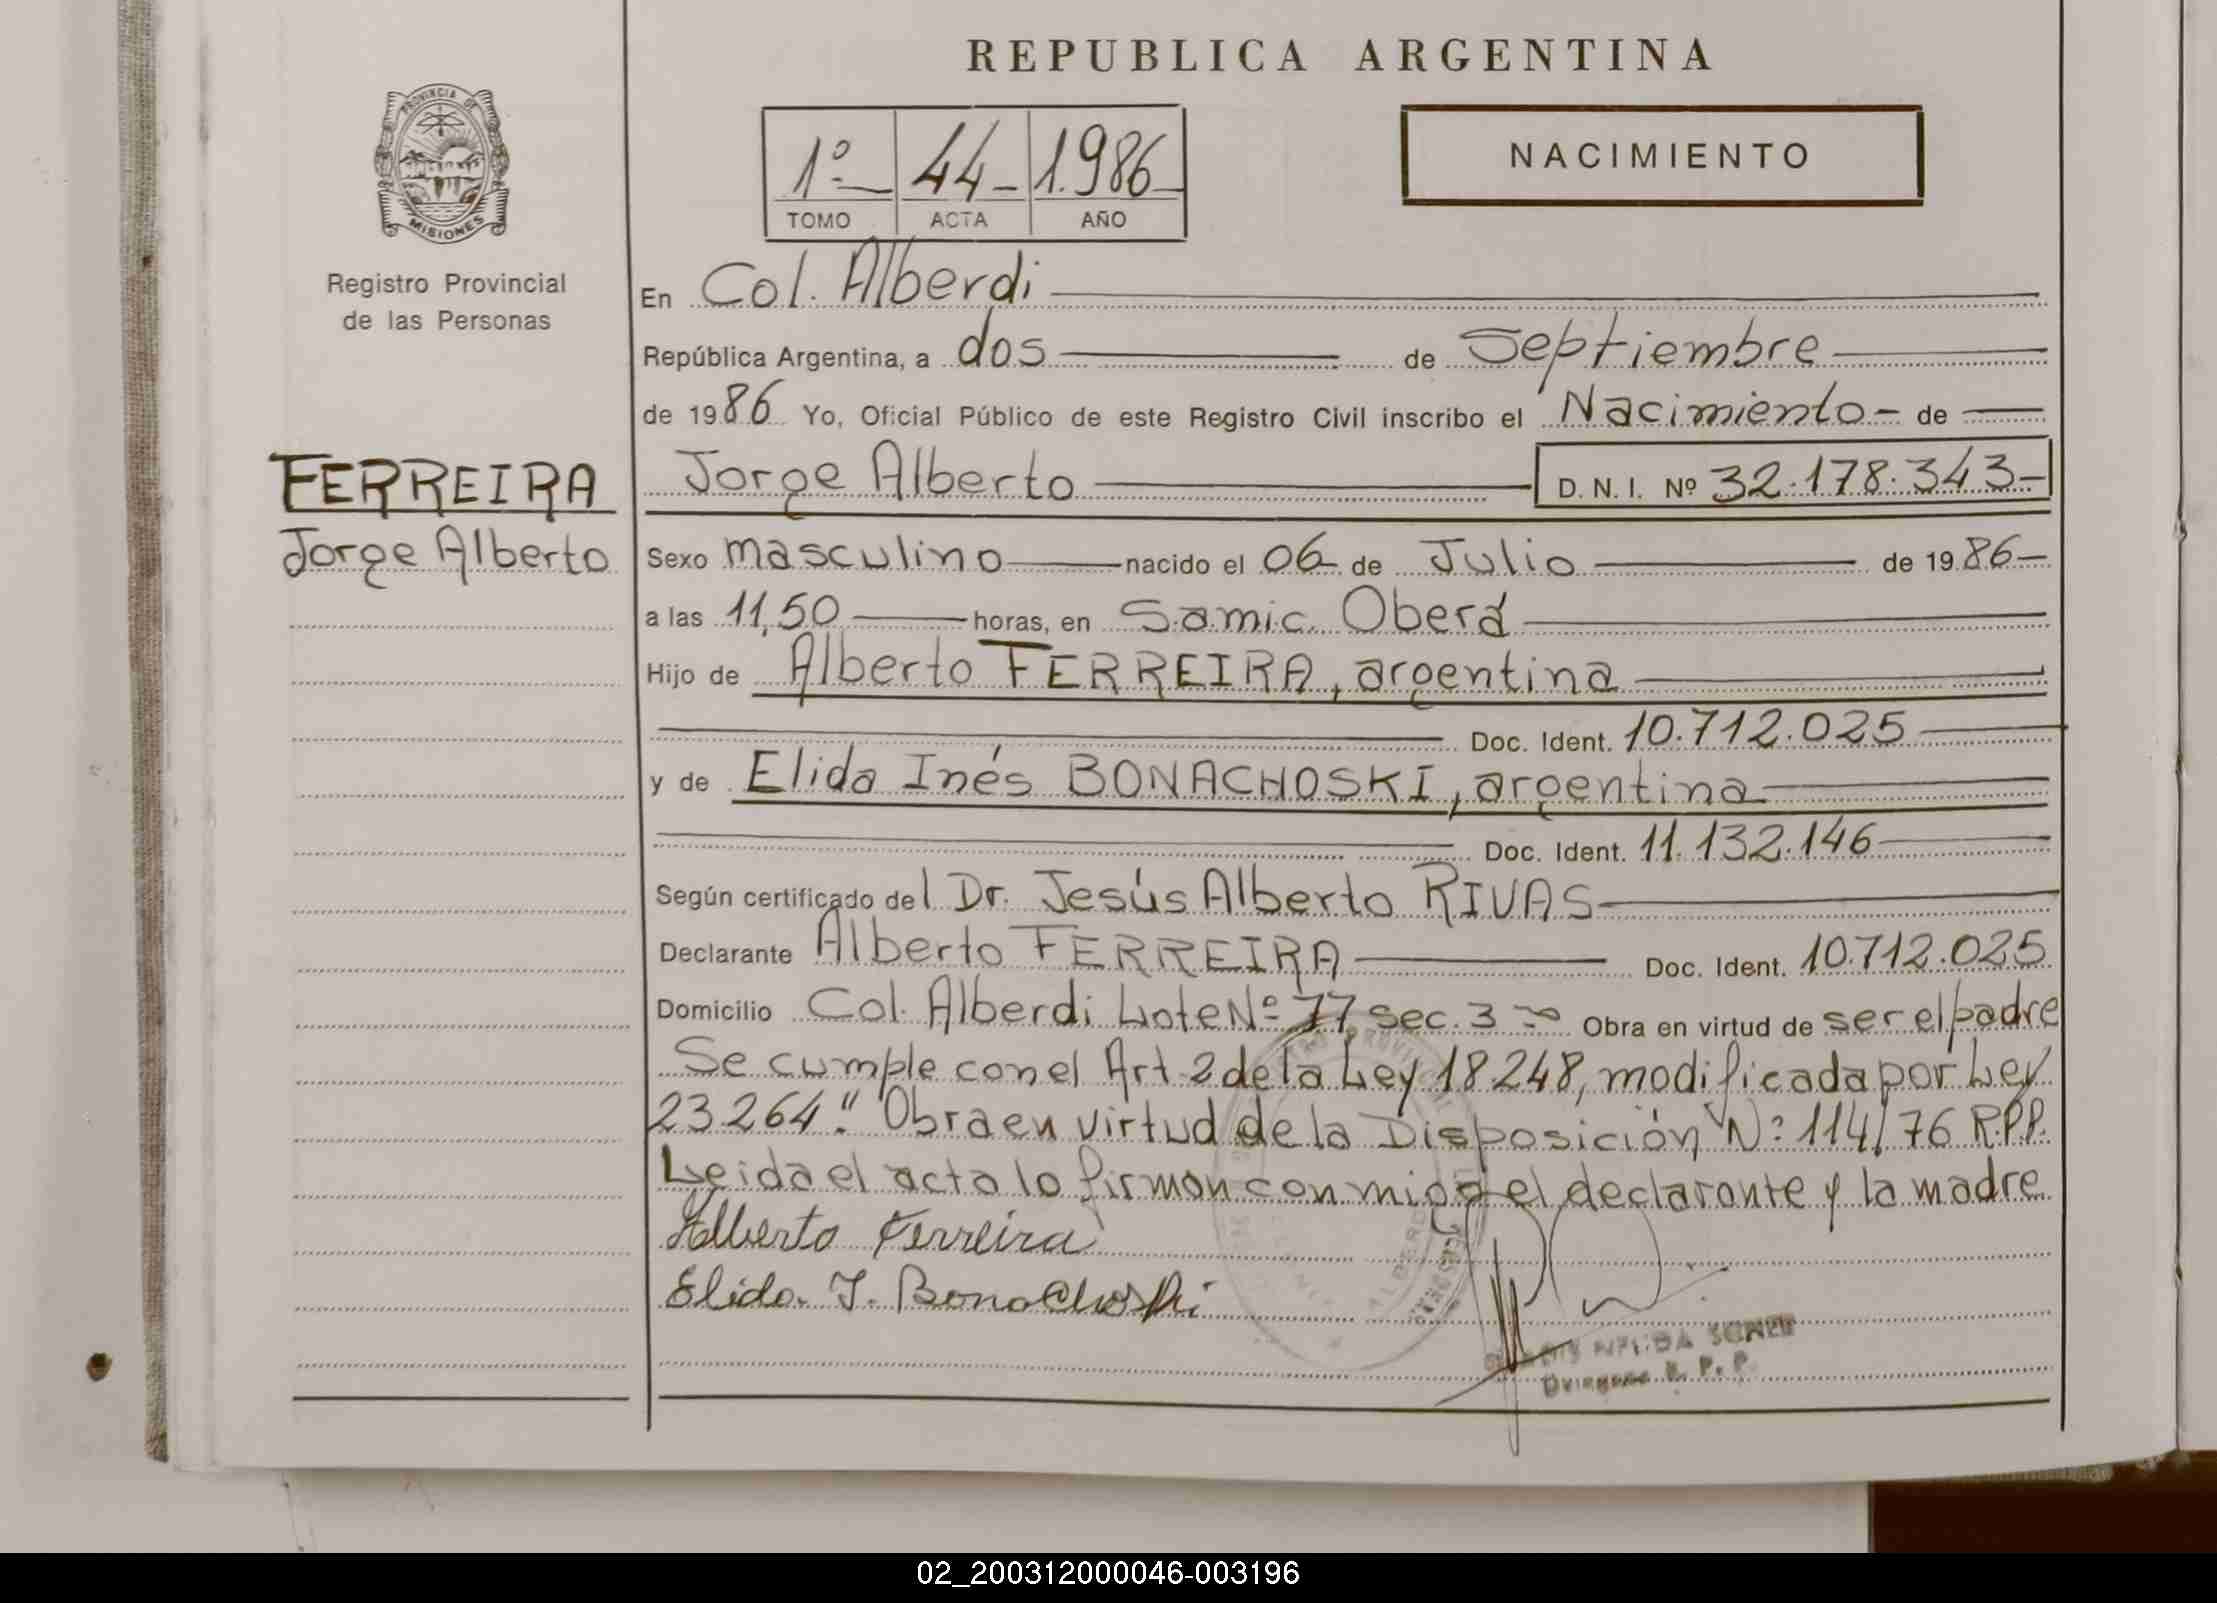 REPUBLICA ARGENTINA
PROVINCIA DE
MISIONES
Registro Provincial
de las Personas
1º 44 1.986
TOMO ACTA AÑO
NACIMIENTO
En Col. Alberdi
República Argentina, a dos de Septiembre
de 1986 Yo, Oficial Público de este Registro Civil inscribo el Nacimiento - de
FERREIRA
Jorge Alberto
Jorge Alberto D.N.I. Nº 32.178.343
Sexo masculino nacido el 06 de Julio de 1986
a las 11,50 horas, en Samic. Oberá
Hijo de Alberto FERREIRA, argentina
Doc. Ident. 10.712.025
y de Elida Inés BONACHOSKI, argentina
Doc. Ident. 11.132.146
Según certificado del Dr. Jesús Alberto RIVAS
Declarante Alberto FERREIRA Doc. Ident. 10.712.025
Domicilio Col. Alberdi Lote Nº 77 sec. 3 Obra en virtud de ser el padre
Se cumple con el Art 2 de la Ley 18248, modificada por Ley
23.264". Obra en virtud de la Disposición Nº 114/76 R.P.P.
Leida el acta lo firman conmigo el declarante y la madre
Alberto Ferreira
Elida I. Bonachoski
NELIDA
R. P. P.
02_200312000046-003196